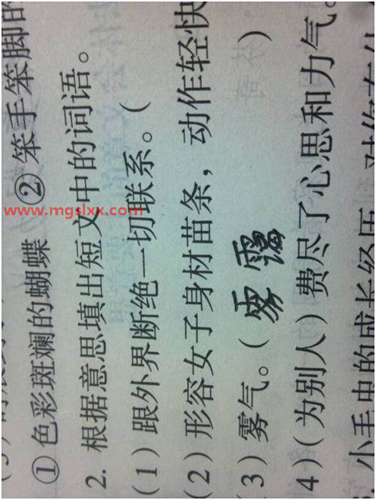 ①色彩斑斓的蝴蝶 ②笨手笨脚的
www.mgslxx.com
2. 根据意思填出短文中的词语。
(1)跟外界断绝一切联系。(
(2)形容女子身材苗条，动作轻快
3)雾气。(雾霭)
4)(为别人)费尽了心思和力气。
的成长经历